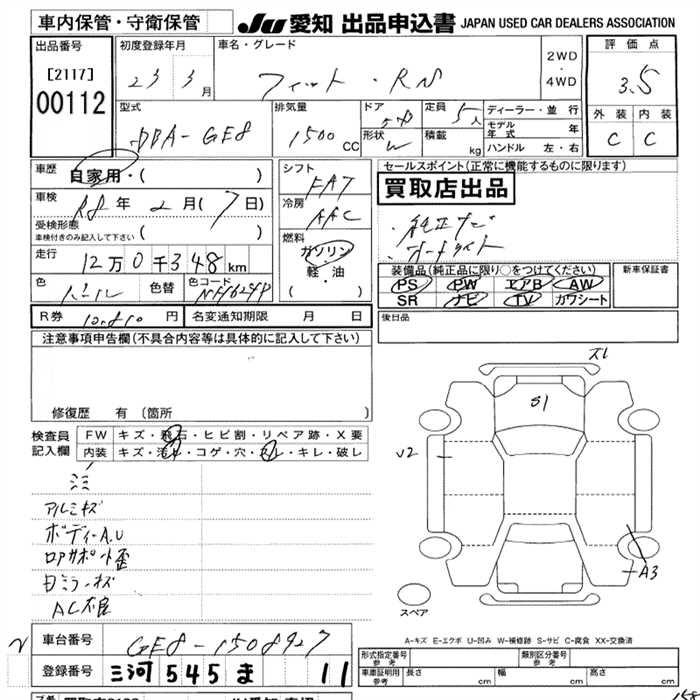 車内保管・守衛保管
JU 愛知 出品申込書 JAPAN USED CAR DEALERS ASSOCIATION
出品番号
[2117]
00112
初度登録年月
23 3月
車名・グレード
フィット・RS
2WD
・
4WD
評価点
3.5
外装 内装
C C
型式
DBA-GE8
排気量
1500cc
ドア
5D
形状
定員
5人
積載
kg
ディーラー・並行
モデル年式 年
ハンドル 左・右
車歴
自家用・( )
車検
R8年2月(7日)
受検形態
車検付きのみ記入して下さい ( )
走行
12万0千348km
色
色替
色コード
シフト
FAT
冷房
AAC
燃料
ガソリン
軽・油
( ・ )
セールスポイント(正常に機能するものに限ります)
買取店出品
・純正ナビ
・オートライト
装備品(純正品に限り○をつけてください)
PS PW エアB AW
SR ナビ TV カワシート
新車保証書
R券 円
名変通知期限 月 日
後日品
注意事項申告欄(不具合内容等は具体的に記入して下さい)
修復歴 有(箇所
検査員記入欄
FW キズ・飛石・ヒビ割・リペア跡・X要
内装 キズ・汚れ・コゲ・穴・スレ・キレ・破レ
アルミキズ
ボディーA.U
ロアサポート歪
ミラーキズ
AC不良
S1
U2
A3
スペア
A-キズ E-エクボ U-凹み W-補修跡 S-サビ C-腐食 XX-交換済
車台番号
GE8-1508927
登録番号
三河 545 ま 11
形式指定番号 参考
類別区分番号 参考
車庫証明用 参考
長さ cm
幅 cm
高さ cm